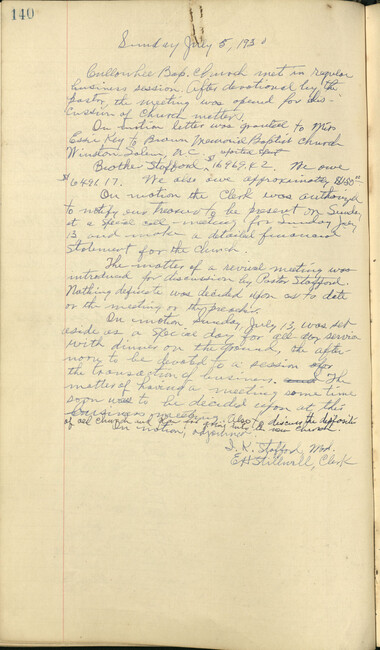 140
Sunday July 5, 193
Cullowhee Bap. Church met in regular
business session. After devotional by the
pastor, the meeting was opened for dis-
cussion of Church matters.
On motion letter was granted to Mrs
Key to Brown Memorial Baptist Church
Winston Salem, N.C.
Brother Stafford $16969.82. We owe
$6491.17. We also owe approximately
On motion the Clerk was authorized
to notify our treasurer to be present on Sunday
at a special call-meeting for Sunday July
13 and make a detailed financial
statement for the church.
The matter of a revival meeting was
introduced for discussion by Pastor Stafford.
Nothing definite was decided upon as to date
or the meeting or the preacher.
On motion Sunday, July 13, was set
aside as a special day for all day service
with dinner on the ground, the after-
noon to be devoted to a session for
the transaction of business. The
matter of having a meeting some time
soon was to be decided upon at this
business meeting. Also to discuss the
of old church and plan for going into the new church.
On motion, adjourned.
I. K. Stafford, Mod.
E H Stillwell, Clerk